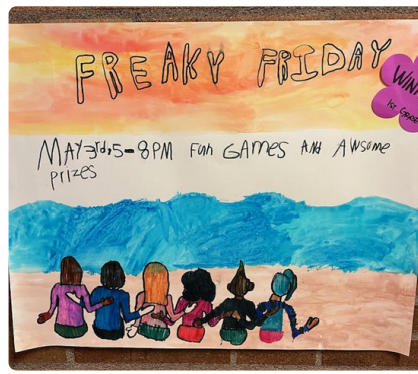 FREAKY FRIDAY
WIN
1st GRADE
MAY 3rd, 5-8PM Fun GAMES AND AWSome
prizes